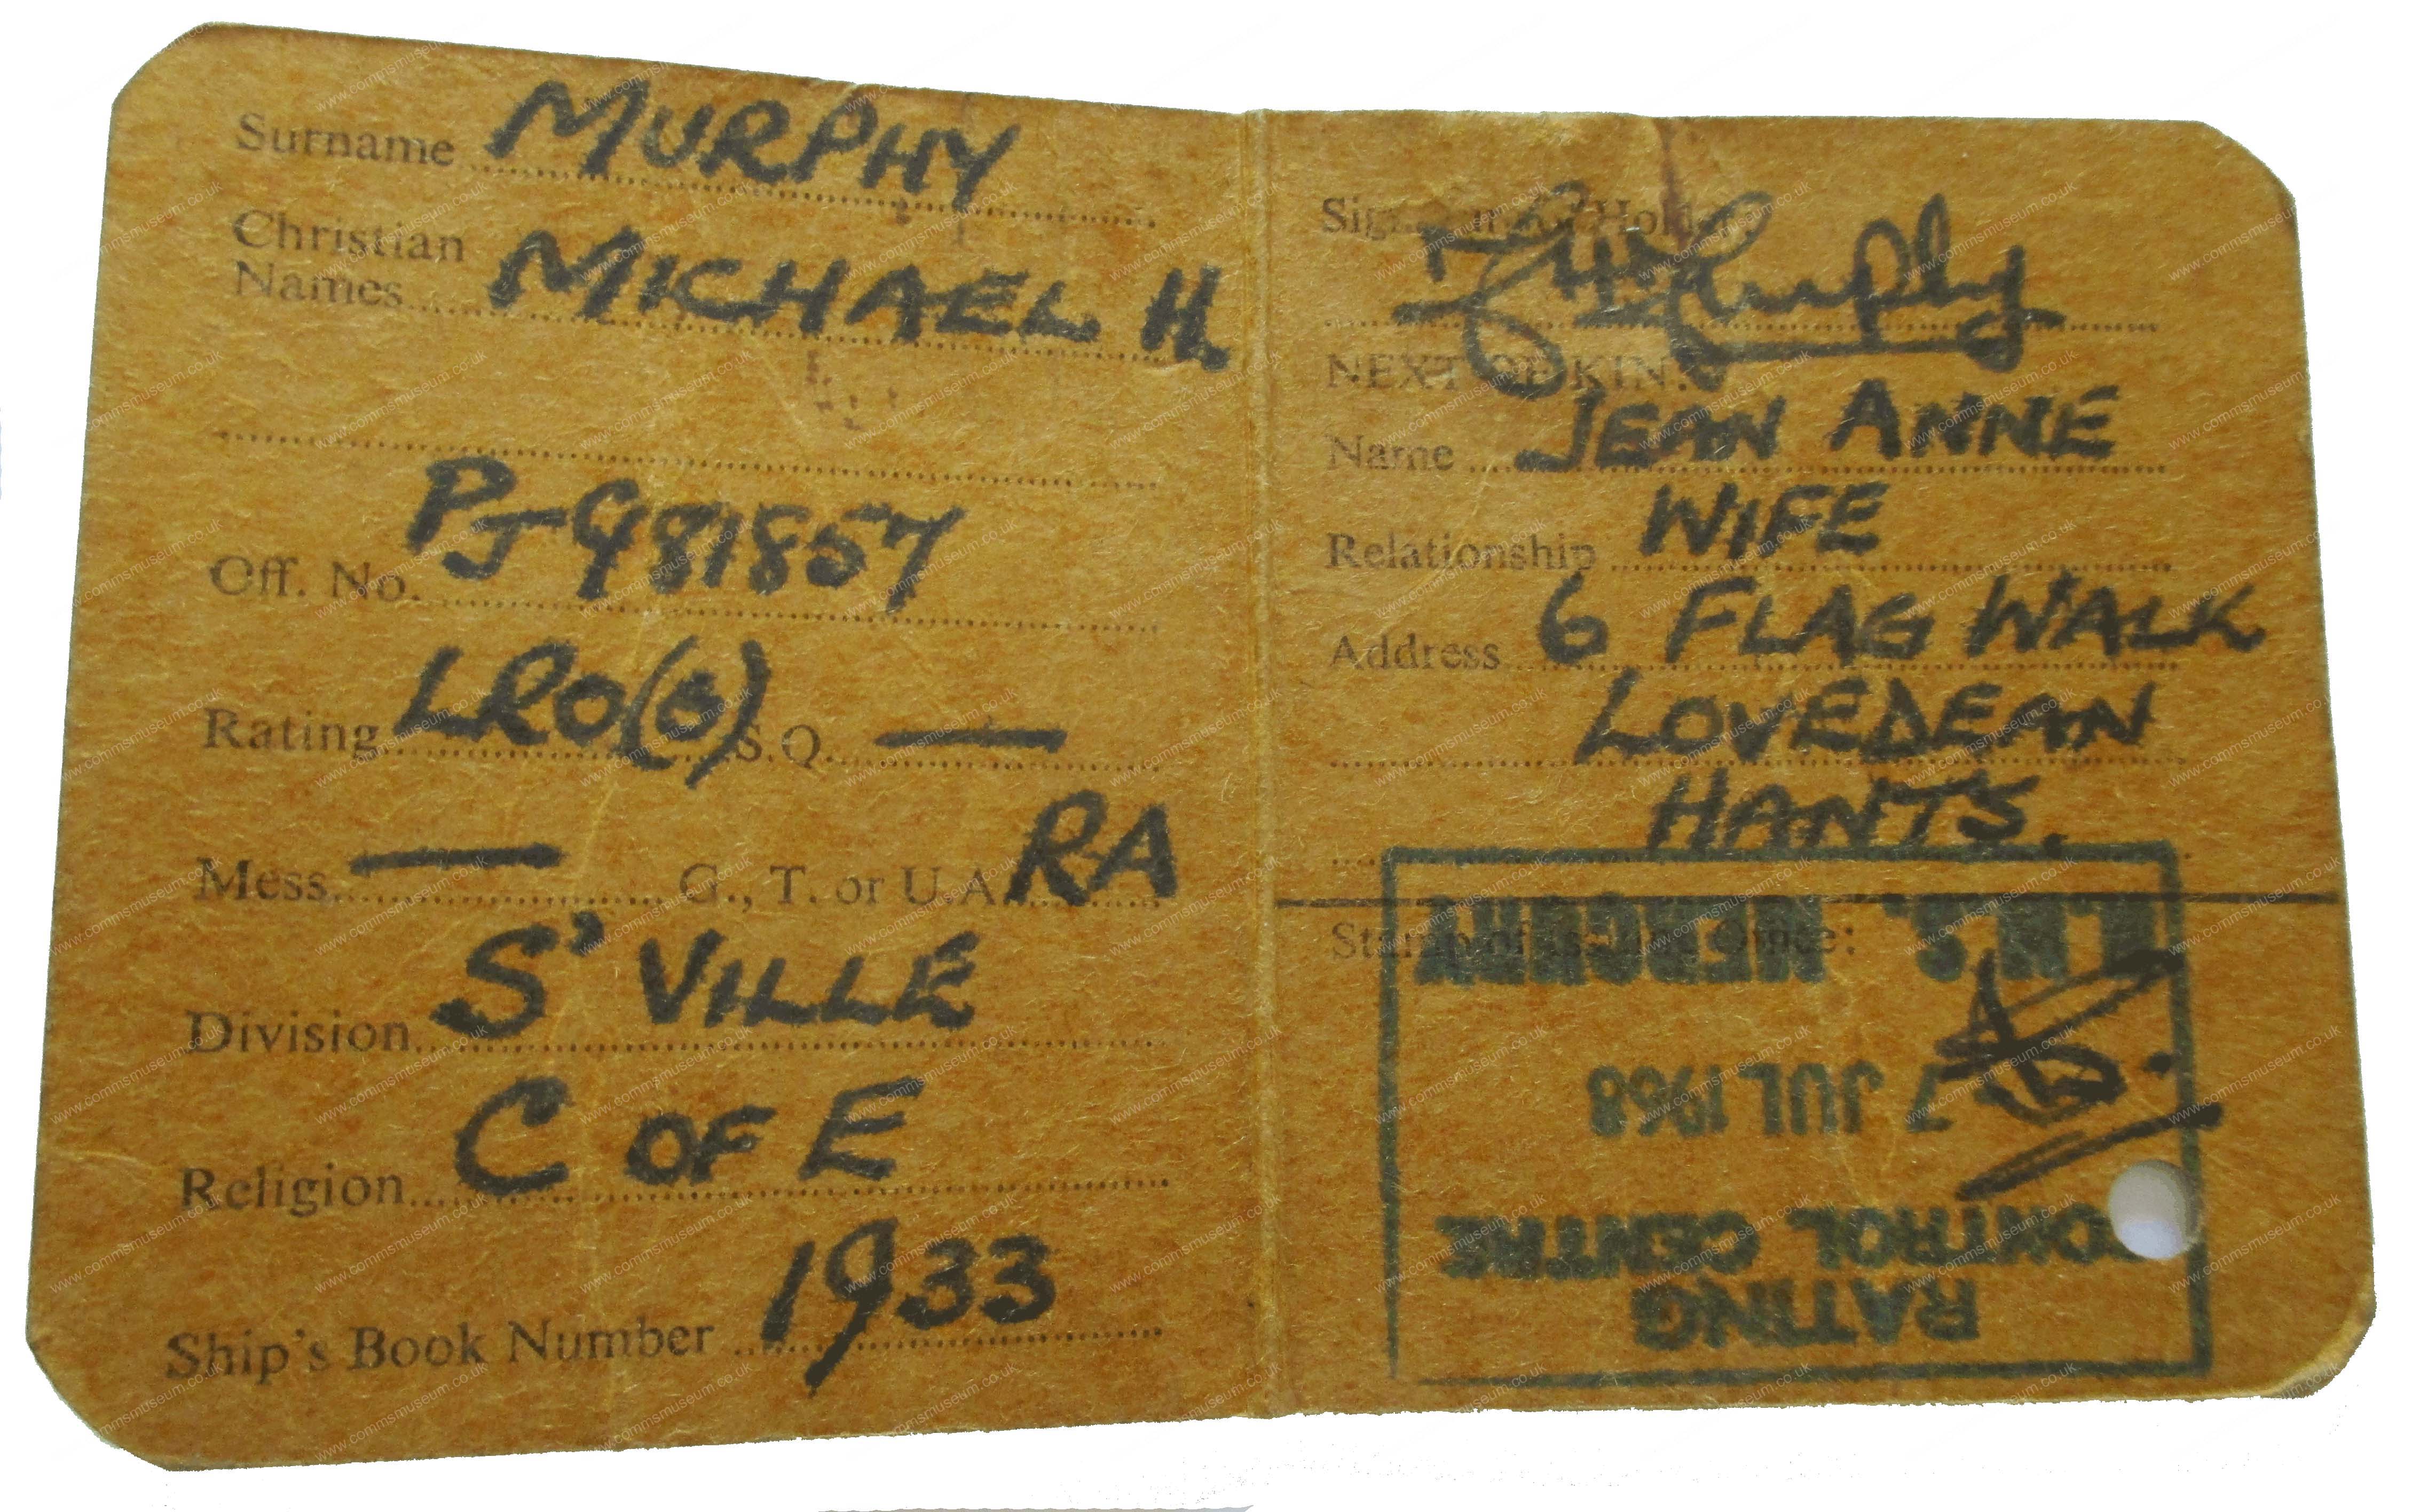 Surname MURPHY
Christian
Names MICHAEL H.
Off. No. PJ 981857
Rating LRO(G) S.Q. —
Mess — G., T. or U.A. RA
Division S'VILLE
Religion C OF E
Ship's Book Number 1933
Signature of Holder:
NEXT OF KIN:
Name JEAN ANNE
Relationship WIFE
Address 6 FLAG WALK
LOVEDEAN
HANTS.
Stamp of Issuing Office:
RATING
CONTROL CENTRE
-7 JUL 1968
H.M.S. MERCURY
www.commsmuseum.co.uk